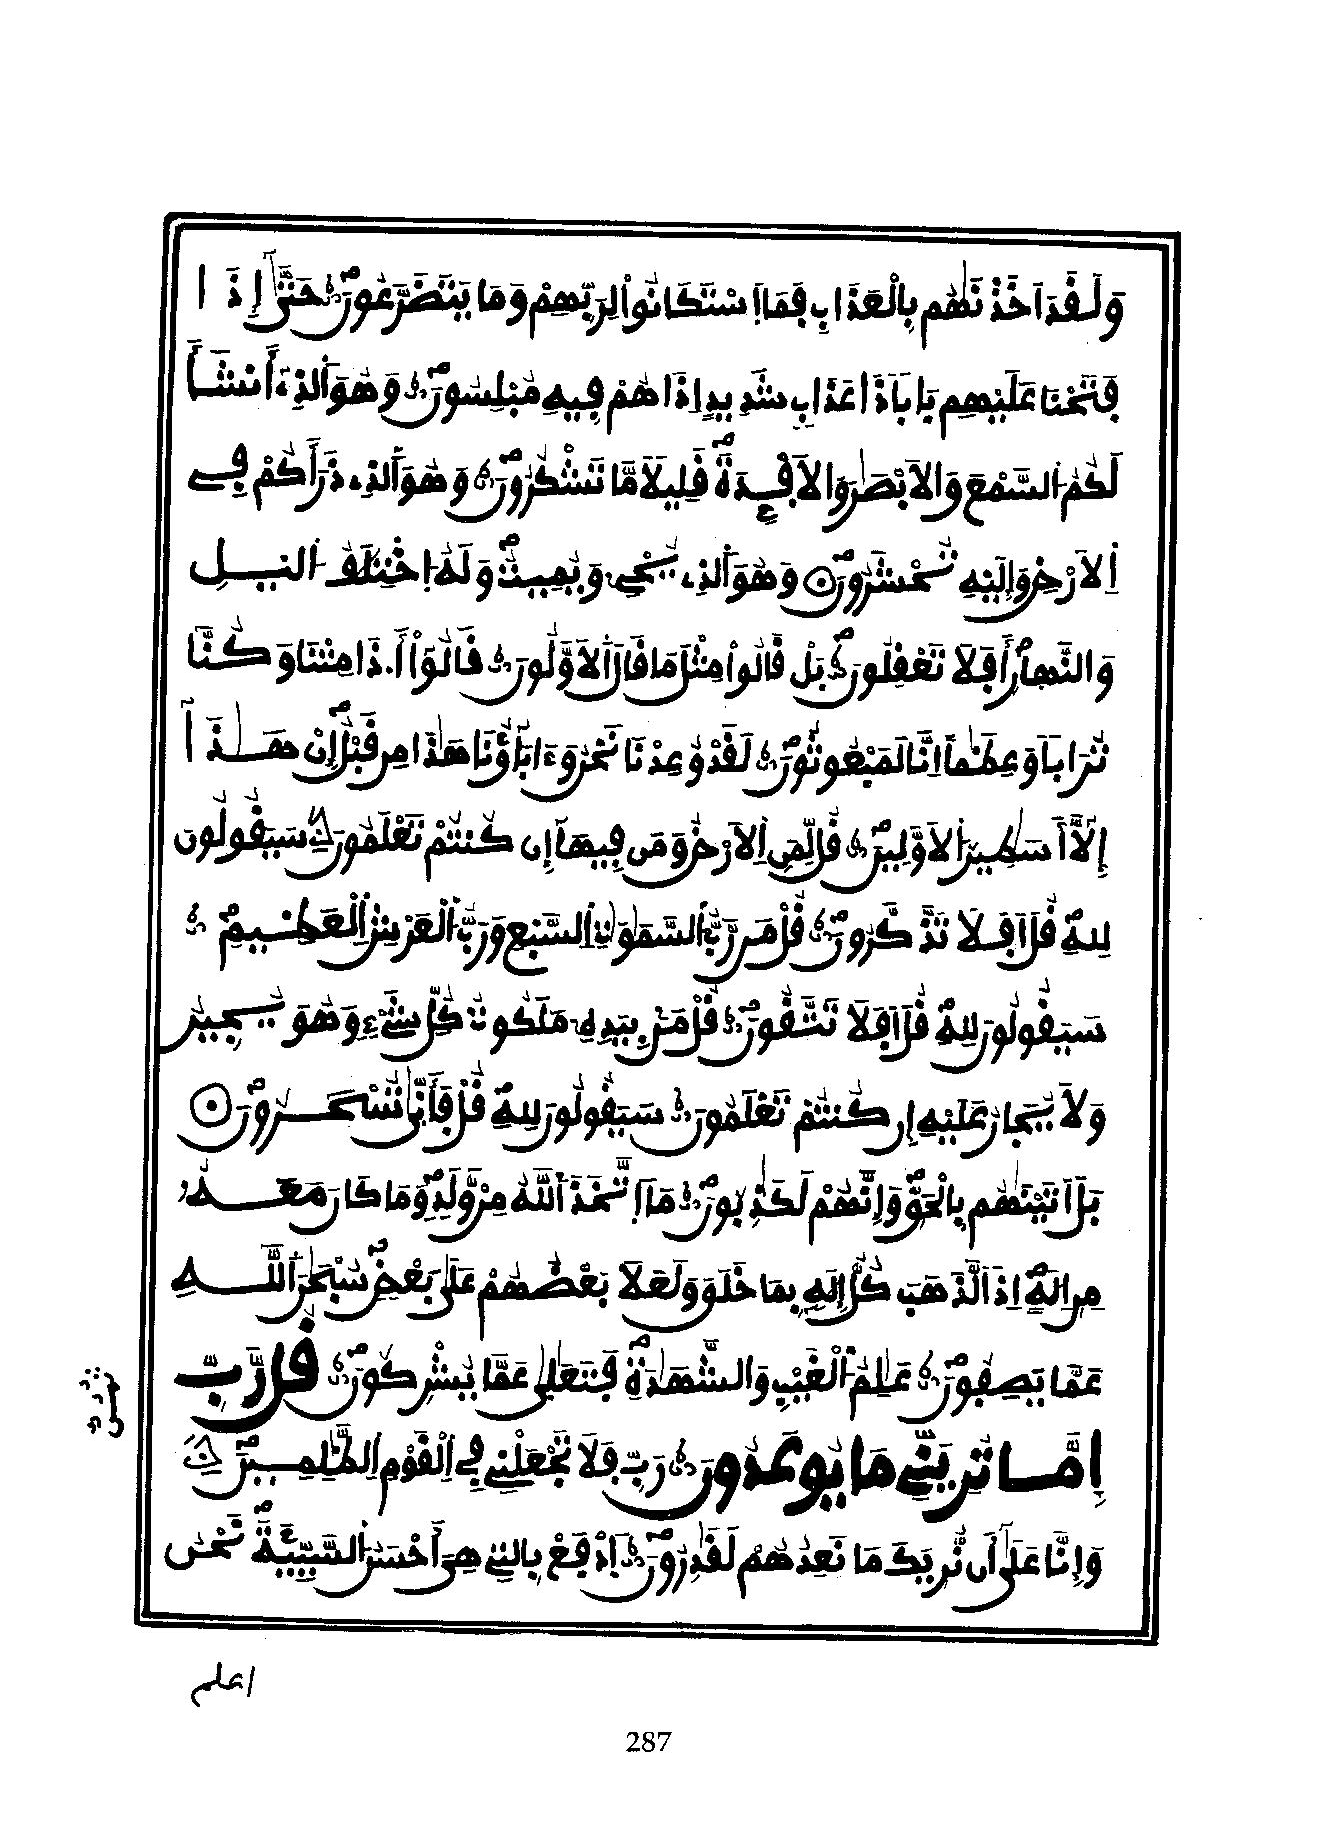 وَلَقَدَ اَخَذْنَٰهُم بِالْعَذَابِ فَمَا اَ۪سْتَكَانُواْ لِرَبِّهِمْ وَمَا يَتَضَرَّعُونَ حَتَّىٰٓ إِذَا
فَتَحْنَا عَلَيْهِم بَاباٗ ذَا عَذَابٖ شَدِيدٍ اِذَا هُمْ فِيهِ مُبْلِسُونَ وَهُوَ اَ۬لذِےٓ أَنشَأَ
لَكُمُ اُ۬لسَّمْعَ وَالَابْصَٰرَ وَالَافْـِٕدَةَ قَلِيلاٗ مَّا تَشْكُرُونَ وَهُوَ اَ۬لذِے ذَرَأَكُمْ فِے
اِ۬لَارْضِ وَإِلَيْهِ تُحْشَرُونَ وَهُوَ اَ۬لذِے يُحْيِۦ وَيُمِيتُ وَلَهُ اُ۪خْتِلَٰفُ اُ۬ليْلِ
وَالنَّهارِ أَفَلَا تَعْقِلُونَ بَلْ قَالُواْ مِثْلَ مَا قَالَ اَ۬لَاوَّلُونَ قَالُوٓاْ أَ.ذَا مِتْنَا وَكُنَّا
تُرَاباٗ وَعِظَٰماً اِنَّا لَمَبْعُوثُونَ لَقَدْ وُعِدْنَا نَحْنُ وَءَابَآؤُنَا هَٰذَا مِن قَبْلُ إِنْ هَٰذَآ
إِلَّآ أَسَٰطِيرُ اُ۬لَاوَّلِينَ قُل لِّمَنِ اِ۬لَارْضُ وَمَن فِيهَآ إِن كُنتُمْ تَعْلَمُونَ سَيَقُولُونَ
لِلهِ قُلَ اَفَلَا تَذَّكَّرُونَ قُلْ مَن رَّبُّ اُ۬لسَّمَٰوَٰتِ اِ۬لسَّبْعِ وَرَبُّ اُ۬لْعَرْشِ اِ۬لْعَظِيمِ
سَيَقُولُونَ لِلهِ قُلَ اَفَلَا تَتَّقُونَ قُلْ مَنۢ بِيَدِهِۦ مَلَكُوتُ كُلِّ شَےْءٖ وَهُوَ يُجِيرُ
وَلَا يُجَارُ عَلَيْهِ إِن كُنتُمْ تَعْلَمُونَ سَيَقُولُونَ لِلهِ قُلْ فَأَنّ۪ىٰ تُسْحَرُونَ
بَلَ اَتَيْنَٰهُم بِالْحَقِّ وَإِنَّهُمْ لَكَٰذِبُونَ مَا اَ۪تَّخَذَ اَ۬للَّهُ مِنْ وَّلَدٖ وَمَا كَانَ مَعَهُۥ
مِنِ اِلَٰهٍ اِذاٗ لَّذَهَبَ كُلُّ إِلَٰهِۢ بِمَا خَلَقَ وَلَعَلَا بَعْضُهُمْ عَلَىٰ بَعْضٖ سُبْحَٰنَ اَ۬للَّهِ
عَمَّا يَصِفُونَ عَٰلِمُ اُ۬لْغَيْبِ وَالشَّهَٰدَةِ فَتَعَٰلَىٰ عَمَّا يُشْرِكُونَ قُل رَّبِّ
إِمَّا تُرِيَنِّے مَا يُوعَدُونَ رَبِّ فَلَا تَجْعَلْنِے فِے اِ۬لْقَوْمِ اِ۬لظَّٰلِمِينَ
وَإِنَّا عَلَىٰٓ أَن نُّرِيَكَ مَا نَعِدُهُمْ لَقَٰدِرُونَ اَ۪دْفَعْ بِالتِے هِيَ أَحْسَنُ اُ۬لسَّيِّئَةَ نَحْنُ
اعلم
287